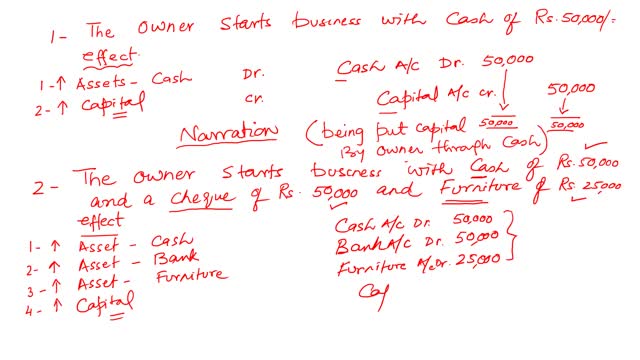 1- The owner starts business with Cash of Rs. 50,000/-
effect
1- ↑ Assets - Cash Dr. Cash A/c Dr. 50,000
2- ↑ Capital cr. Capital A/c cr. 50,000
50,000 50,000
Narration (being put capital
By owner through Cash)
2- The owner starts business with Cash of Rs. 50,000
and a cheque of Rs. 50,000 and Furniture of Rs. 25,000
effect
1- ↑ Asset - Cash Cash A/c Dr. 50,000
2- ↑ Asset - Bank Bank A/c Dr. 50,000
3- ↑ Asset - Furniture Furniture A/c Dr. 25,000
4- ↑ Capital Cap